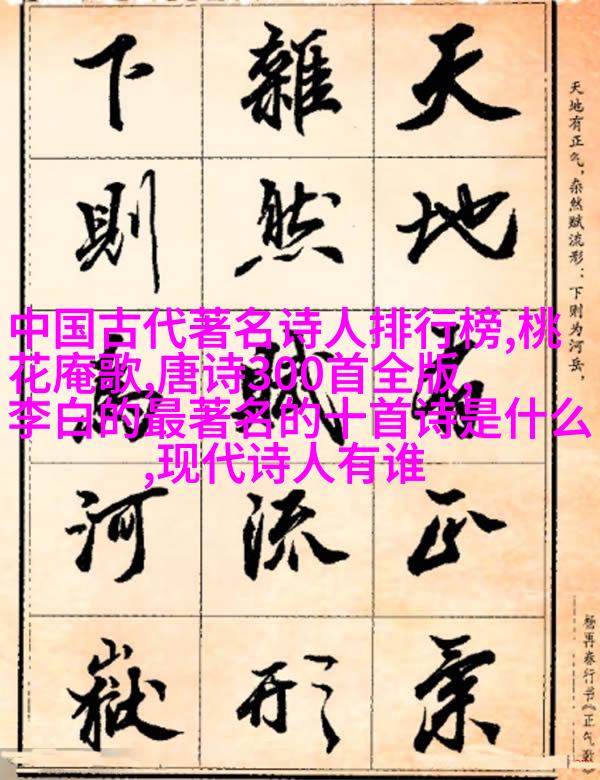 天地有正氣
雜然賦流形
下則為河嶽
天地有正气，杂然赋流形：下则为河岳，
杨再春行书《正气歌》
中国古代著名诗人排行榜,桃
花庵歌,唐诗300首全版,
李白的最著名的十首诗是什么
,现代诗人有谁